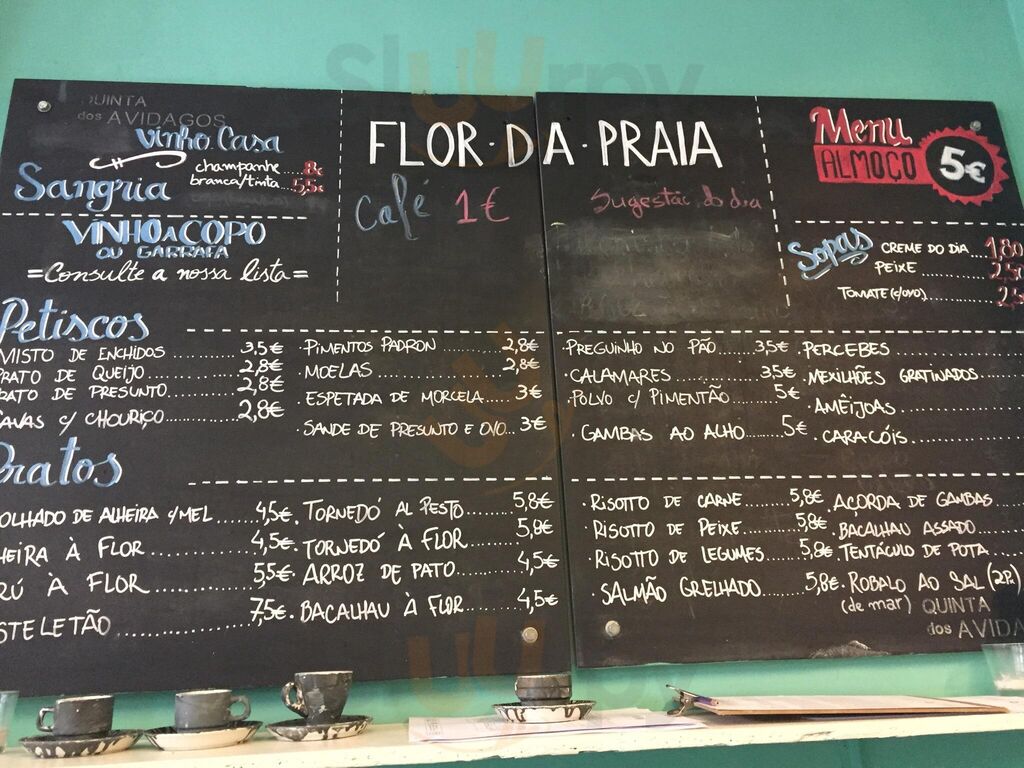 Slurrpy
QUINTA
dos AVIDAGOS
Vinho Casa
champanhe....8€
branca/tinta....5,5€
Sangria
VINHO A COPO
OU GARRAFA
=Consulte a nossa lista=
FLOR·DA·PRAIA
Café 1€
Sugestão do dia
Menu
ALMOÇO
5€
Sopas
CREME DO DIA...1,80
PEIXE...2,5
TOMATE (c/ovo)...2,5
Petiscos
MISTO DE ENCHIDOS...3,5€
PRATO DE QUEIJO...2,8€
PRATO DE PRESUNTO...2,8€
FAVAS C/ CHOURIÇO...2,8€
·PIMENTOS PADRON...2,8€
·MOELAS...2,8€
·ESPETADA DE MORCELA...3€
·SANDE DE PRESUNTO E OVO...3€
·PREGUINHO NO PÃO...3,5€
·CALAMARES...3,5€
·POLVO C/ PIMENTÃO...5€
·GAMBAS AO ALHO...5€
·PERCEBES
·MEXILHÕES GRATINADOS
·AMÊIJOAS
·CARACÓIS
Pratos
OLHADO DE ALHEIRA C/MEL...4,5€
HEIRA À FLOR...4,5€
RÚ À FLOR...5,5€
STELETÃO...7,5€
·TORNEDÓ AL PESTO...5,8€
·TORNEDÓ À FLOR...5,8€
·ARROZ DE PATO...4,5€
·BACALHAU À FLOR...4,5€
·RISOTTO DE CARNE...5,8€
·RISOTTO DE PEIXE...5,8€
·RISOTTO DE LEGUMES...5,8€
·SALMÃO GRELHADO...5,8€
·AÇORDA DE GAMBAS
·BACALHAU ASSADO
·TENTÁCULO DE POTA
·ROBALO AO SAL (2P.)
(de mar)
QUINTA
dos AVIDA
slurrpy